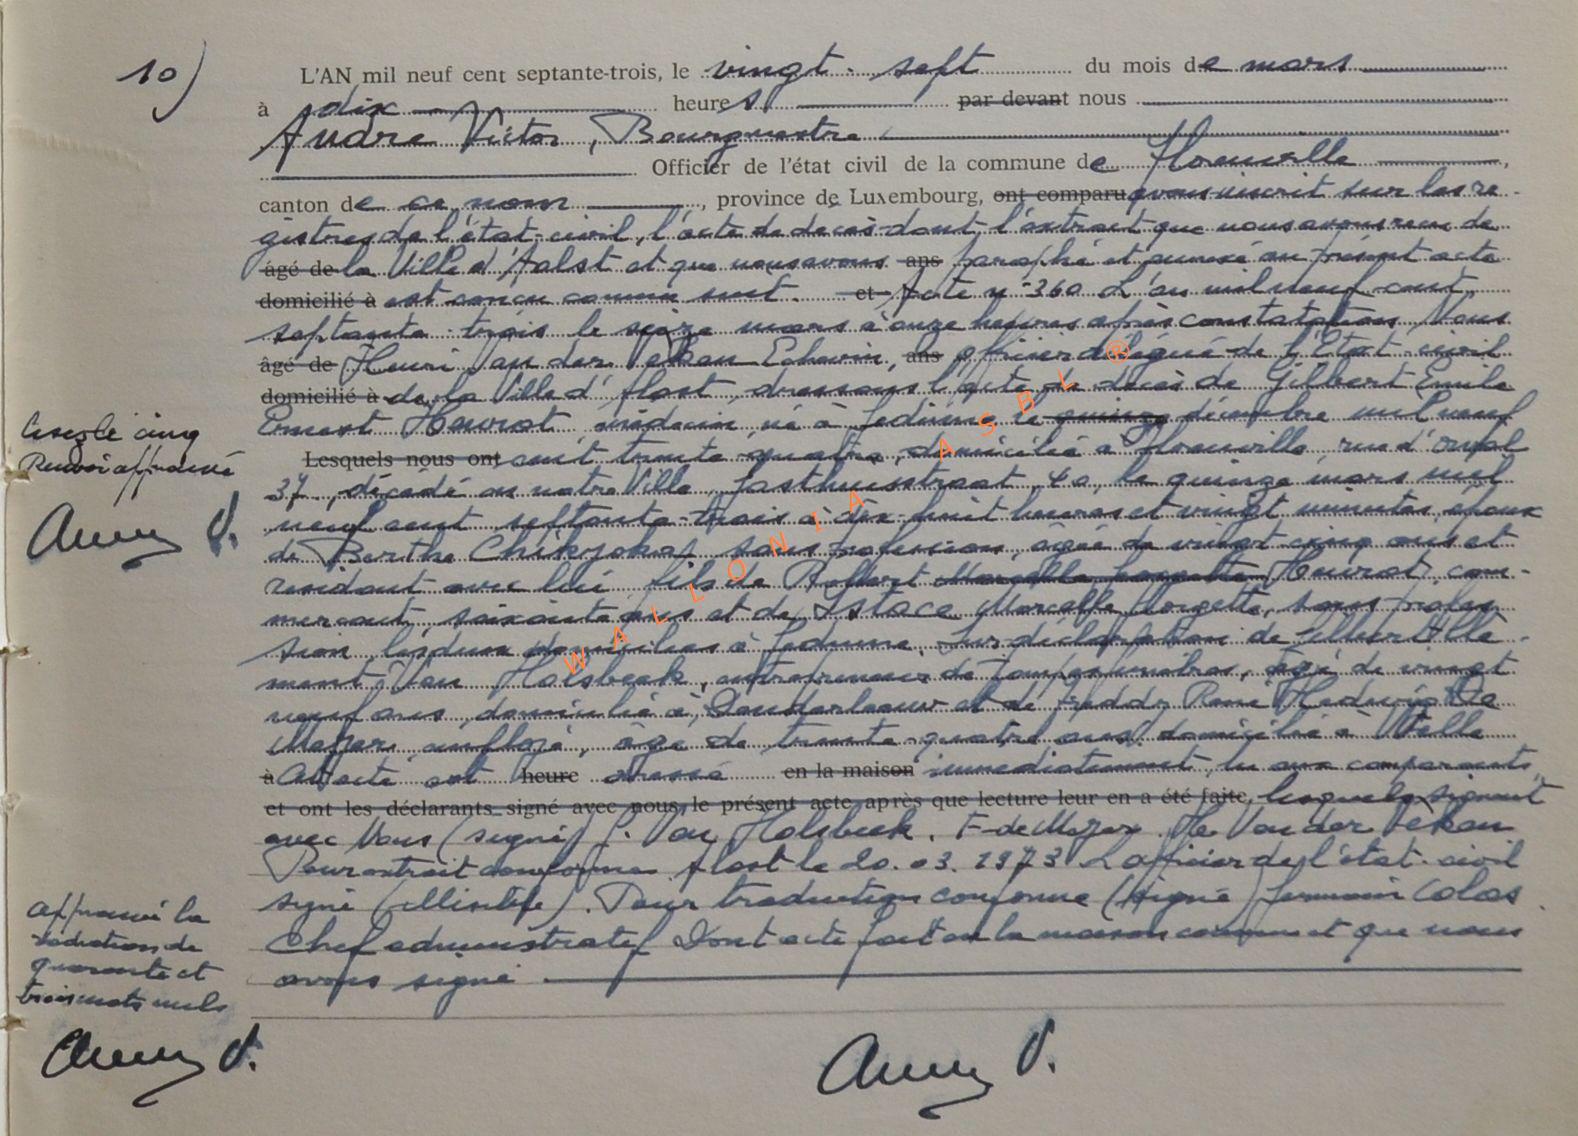 10)
L'AN mil neuf cent septante-trois, le vingt-sept du mois de mars
à dix heures par devant nous
André Victor, Bourgmestre
Officier de l'état civil de la commune de Florenville,
canton de ce nom, province de Luxembourg, ont comparu avons inscrit sur les re-
gistres de l'état-civil, l'acte de décès dont l'extrait que nous avons reçu de
âgé de la Ville d'Aalst et que nous avons ans paraphé et annexé au présent acte
domicilié à est conçu comme suit. et Acte n° 360 L'an mil neuf cent
septante-trois le seize mars à onze heures après constatation Nous
âgé de Henri Van der Veken Echevin, ans officier délégué de l'Etat-civil
domicilié à de la Ville d'Alost, dressons l'acte de décès de Gilbert Emile
Ernest Hourot, médecin, né à Jedinne le quinze décembre mil neuf
Lisez le cinq
Renvoi approuvé
Lesquels nous ont cent trente quatre, domicilié à Florenville, rue d'Orval
37, décédé en notre Ville, Gasthuisstraat, 40, le quinze mars mil
neuf cent septante-trois à dix-huit heures et vingt minutes, époux
de Berthe, sans profession, âgée de vingt-cinq ans et
résidant avec lui, fils de Robert Hourot, com-
merçant, soixante ans et de Istace Marcelle Georgette, sans profes-
sion, les deux domiciliés à Gedinne. Sur déclaration de
Van Holsbeek, entrepreneur de pompes funèbres, âgé de vingt
neuf ans, domicilié à Denderleeuw et de Freddy René Hedwig De
Mayer employé, âgé de trente-quatre ans domicilié à Welle
à L'acte est heure dressé en la maison immédiatement, lu aux comparants,
et ont les déclarants signé avec nous, le présent acte après que lecture leur en a été faite, lesquels signent
avec Nous (signé) J. Van Holsbeek. F. de Mayer. He Van der Veken
Pour extrait conforme Alost le 20.03.1973 L'officier de l'état-civil
signé (illisible). Pour traduction conforme (signé) Germain Colas
Chef administratif Dont acte fait en la maison commune et que nous
avons signé
approuvé la
radiation de
quarante et
trois mots nuls
V.
V.
V.
WALLONIA ASBL ®